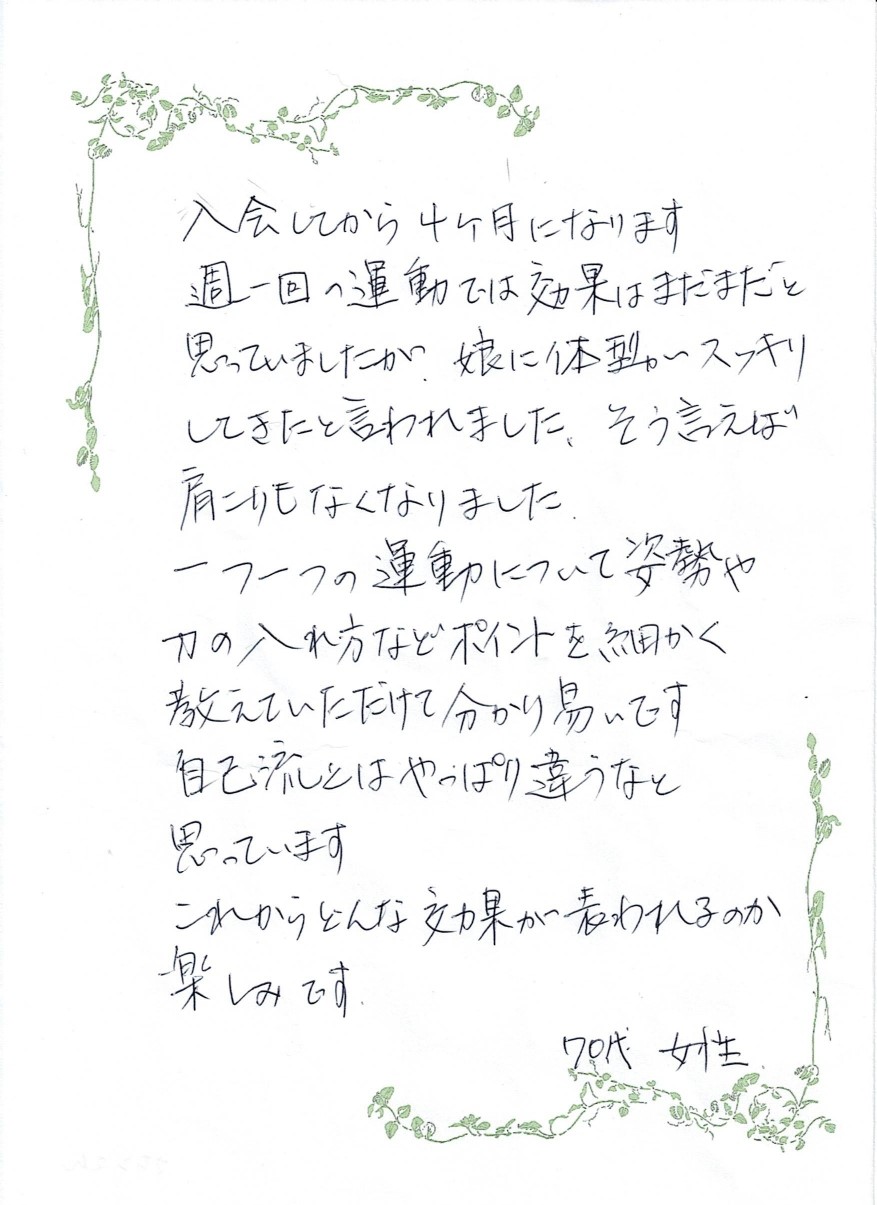 入会してから 4ヶ月になります
週一回の運動では効果はまだまだと
思っていましたが、娘に体型がスッキリ
してきたと言われました、そう言えば
肩こりもなくなりました.
一つ一つの運動について姿勢や
力の入れ方などポイントを細かく
教えていただけて分かり易いです
自己流とはやっぱり違うなと
思っています
これからどんな効果が表われるのか
楽しみです.
70代 女性.